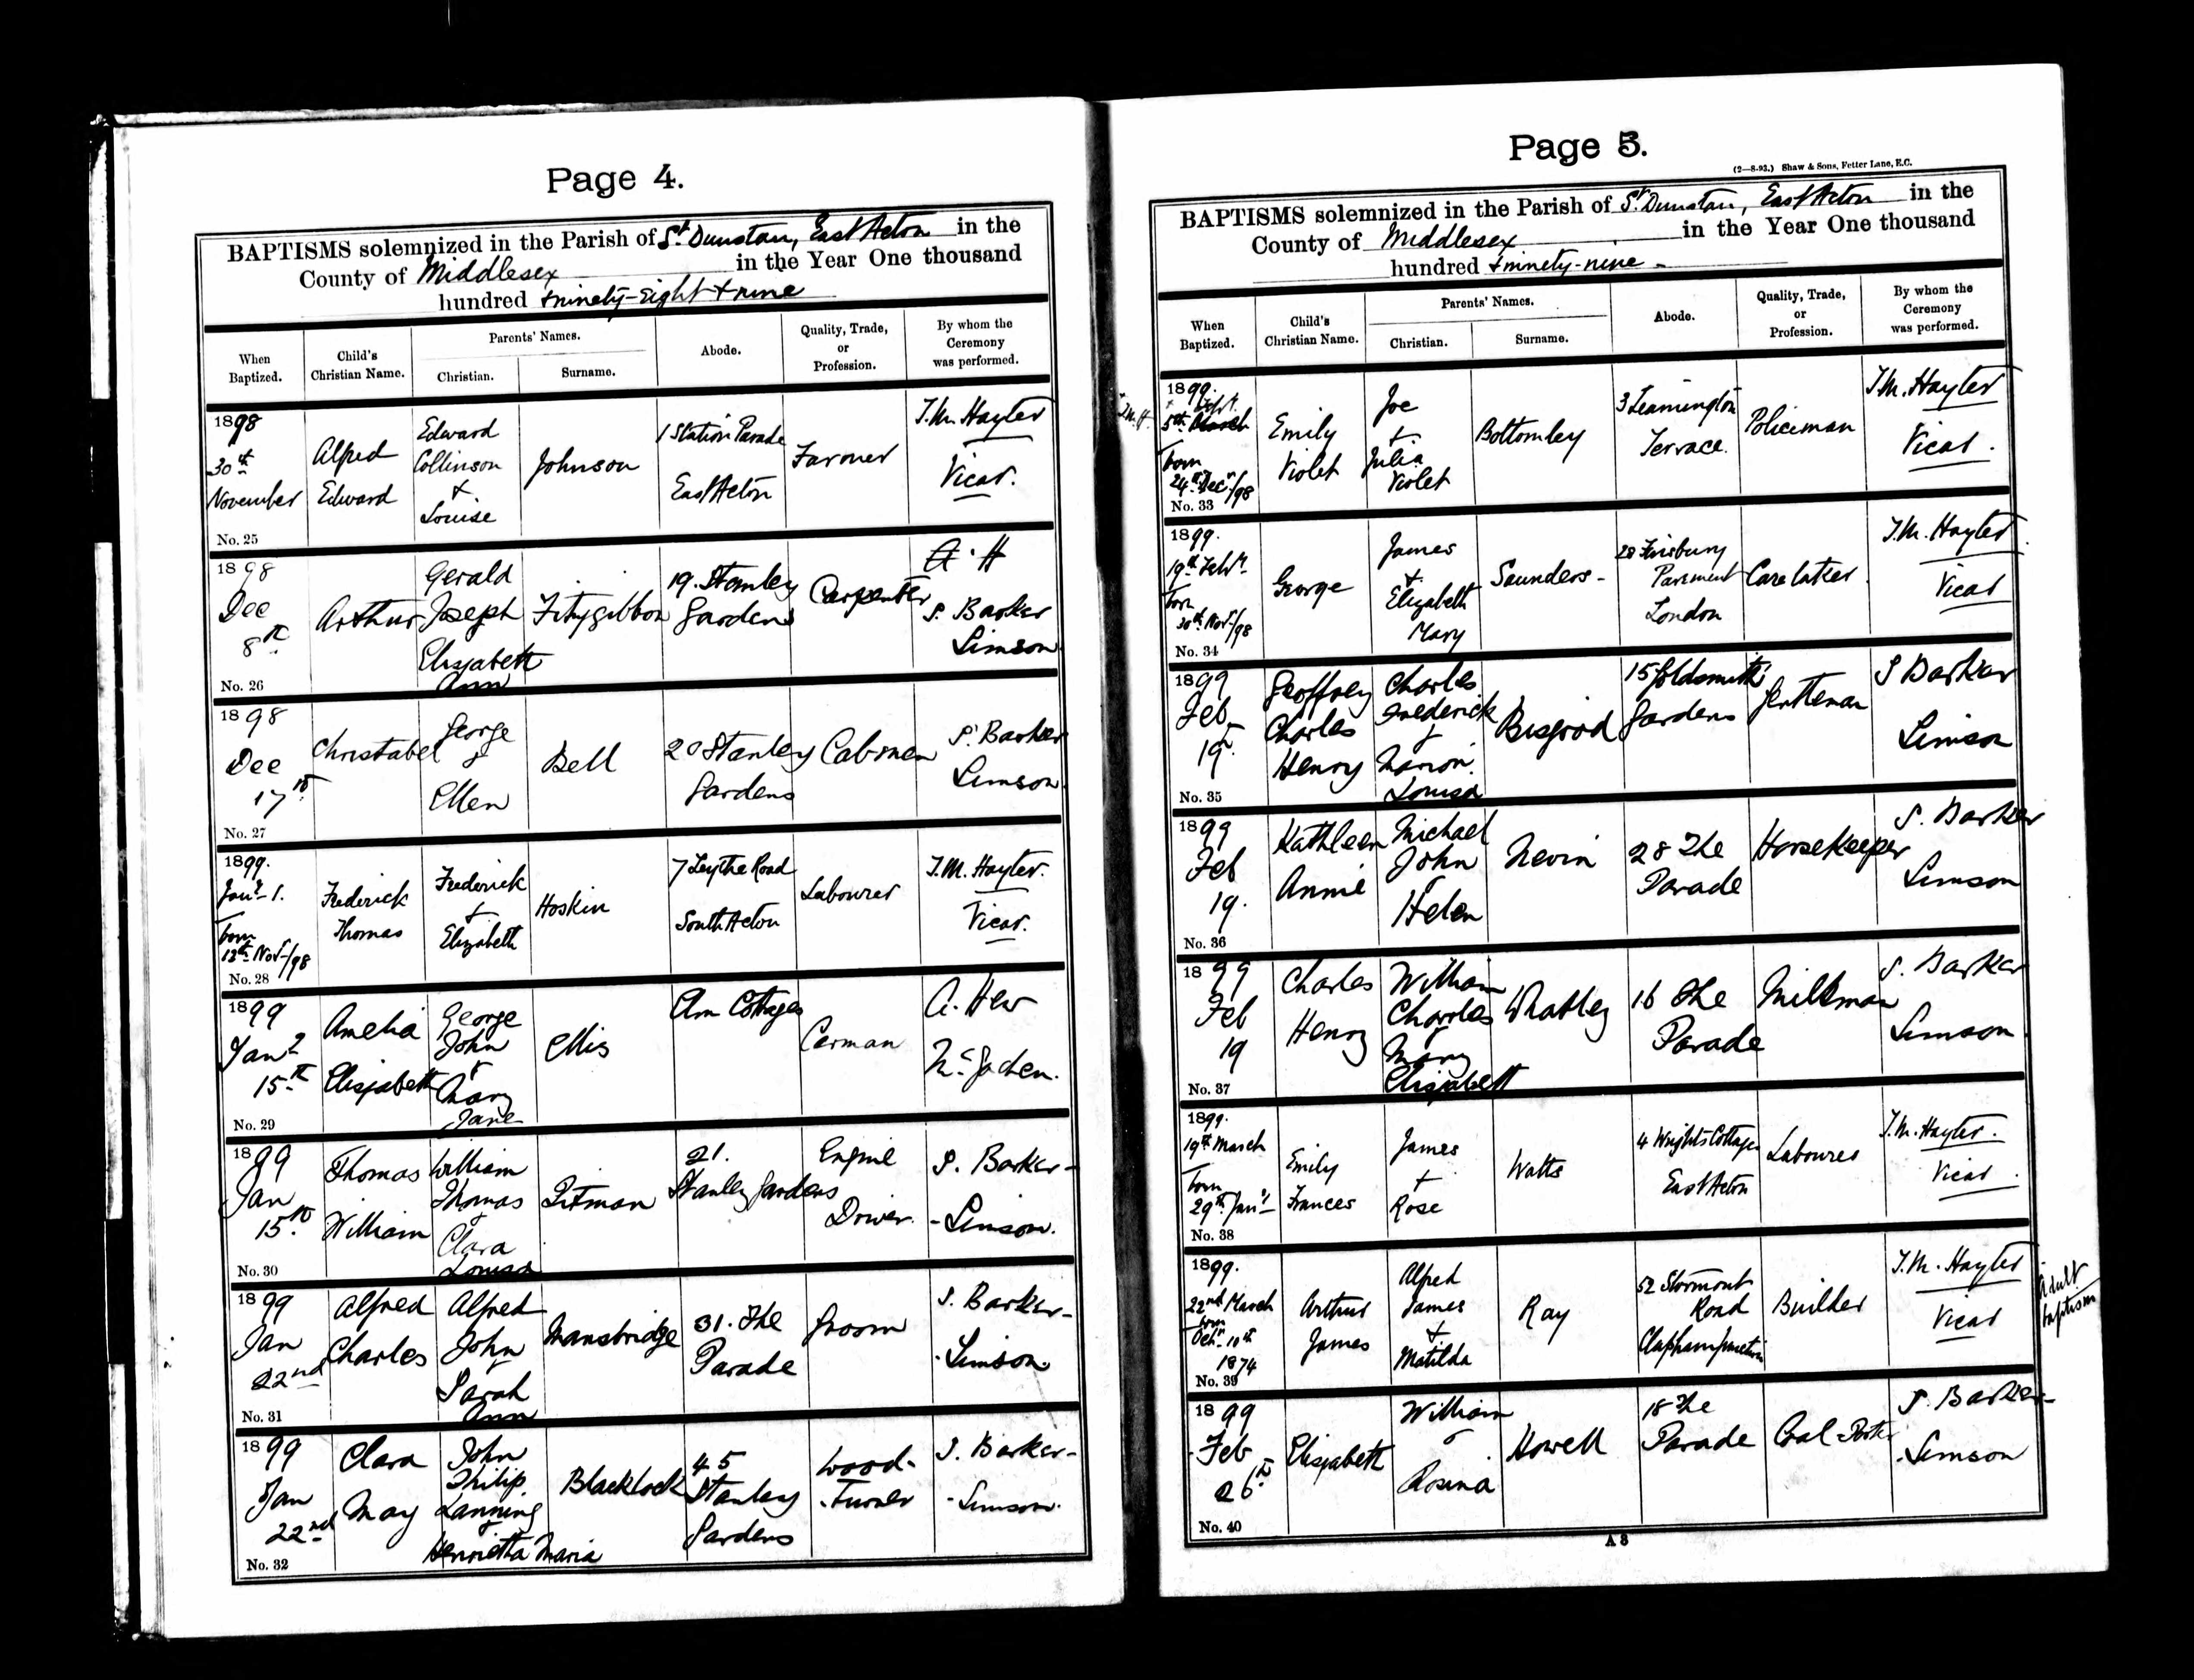 Page 4.
BAPTISMS solemnized in the Parish of St. Dunstan, East Acton in the
County of Middlesex in the Year One thousand
hundred + ninety-eight + nine
When Baptized.
Child's Christian Name.
Parents' Names.
Christian.
Surname.
Abode.
Quality, Trade, or Profession.
By whom the Ceremony was performed.
1898
30th
November
No. 25
Alfred
Edward
Edward
Collinson
+
Louise
Johnson
1 Station Parade
East Acton
Farmer
T.M. Hayter
Vicar.
1898
Dec
8th
No. 26
Arthur
Gerald
Joseph
Elizabeth
Ann
Fitzgibbon
19. Stanley
Gardens
Carpenter
S. Barker
Simson
1898
Dec
17th
No. 27
Christabel
George
&
Ellen
Bell
20 Stanley
Gardens
Cabman
S. Barker
Simson.
1899.
Jany 1.
born
No. 28
Frederick
Thomas
Frederick
+
Elizabeth
Hoskin
7 Leythe Road
South Acton
Labourer
T.M. Hayter.
Vicar.
1899
Jany
15th
No. 29
Amelia
Elizabeth
George
John
&
Mary
Jane
Ellis
Elm Cottages
Carman
1899
Jan
15th
No. 30
Thomas
William
William
Thomas
&
Clara
Louisa
Pitman
21.
Stanley Gardens
Engine
Driver.
S. Barker-
-Simson.
1899
Jan
22nd
No. 31
Alfred
Charles
Alfred
John
&
Sarah
Ann
Mansbridge
31. The
Parade
Groom
S. Barker-
-Simson.
1899
Jan
22nd
No. 32
Clara
May
John
Philip
Lanning
&
Henrietta Maria
Blacklock
45
Stanley
Gardens
Wood-
-Turner
S. Barker-
-Simson.
Page 5.
(2—8-93.) Shaw & Sons, Fetter Lane, E.C.
BAPTISMS solemnized in the Parish of St. Dunstan, East Acton in the
County of Middlesex in the Year One thousand
hundred + ninety-nine
When Baptized.
Child's Christian Name.
Parents' Names.
Christian.
Surname.
Abode.
Quality, Trade, or Profession.
By whom the Ceremony was performed.
1899.
5th March
born
24th Decr/98
No. 33
Emily
Violet
Joe
+
Julia
Violet
Bottomley
3 Leamington
Terrace.
Policeman
T.M. Hayter
Vicar.
1899.
19th Feby
born
30th Nov/98
No. 34
George
James
+
Elizabeth
Mary
Saunders-
28 Finsbury
Pavement
London
Caretaker
T.M. Hayter
Vicar
1899
Feb
19.
No. 35
Geoffrey
Charles
Henry
Charles
Frederick
&
Marion
Louisa
Bisgood
15 Goldsmith
Gardens
Gentleman
S Barker
Simson
1899
Feb
19.
No. 36
Kathleen
Annie
Michael
John
&
Helen
Nevin
28 The
Parade
Horsekeeper
S. Barker
Simson
1899
Feb
19
No. 37
Charles
Henry
William
Charles
&
Mary
Elizabeth
Whatley
16 The
Parade
Milkman
S. Barker
Simson
1899.
19th March
born
29th Jany
No. 38
Emily
Frances
James
+
Rose
Watts
4 Wrights Cottages
East Acton
Labourer
T.M. Hayter.
Vicar.
1899.
22nd March
born
Octr 10th
1874
No. 39
Arthur
James
Alfred
James
+
Matilda
Ray
52 Stormont
Road
Clapham Junction
Builder
T.M. Hayter
Vicar
Adult
baptism
1899
Feb
26th
No. 40
Elizabeth
William
&
Rosina
Howell
18 The
Parade
Coal-Porter
S. Barker-
-Simson
A 3